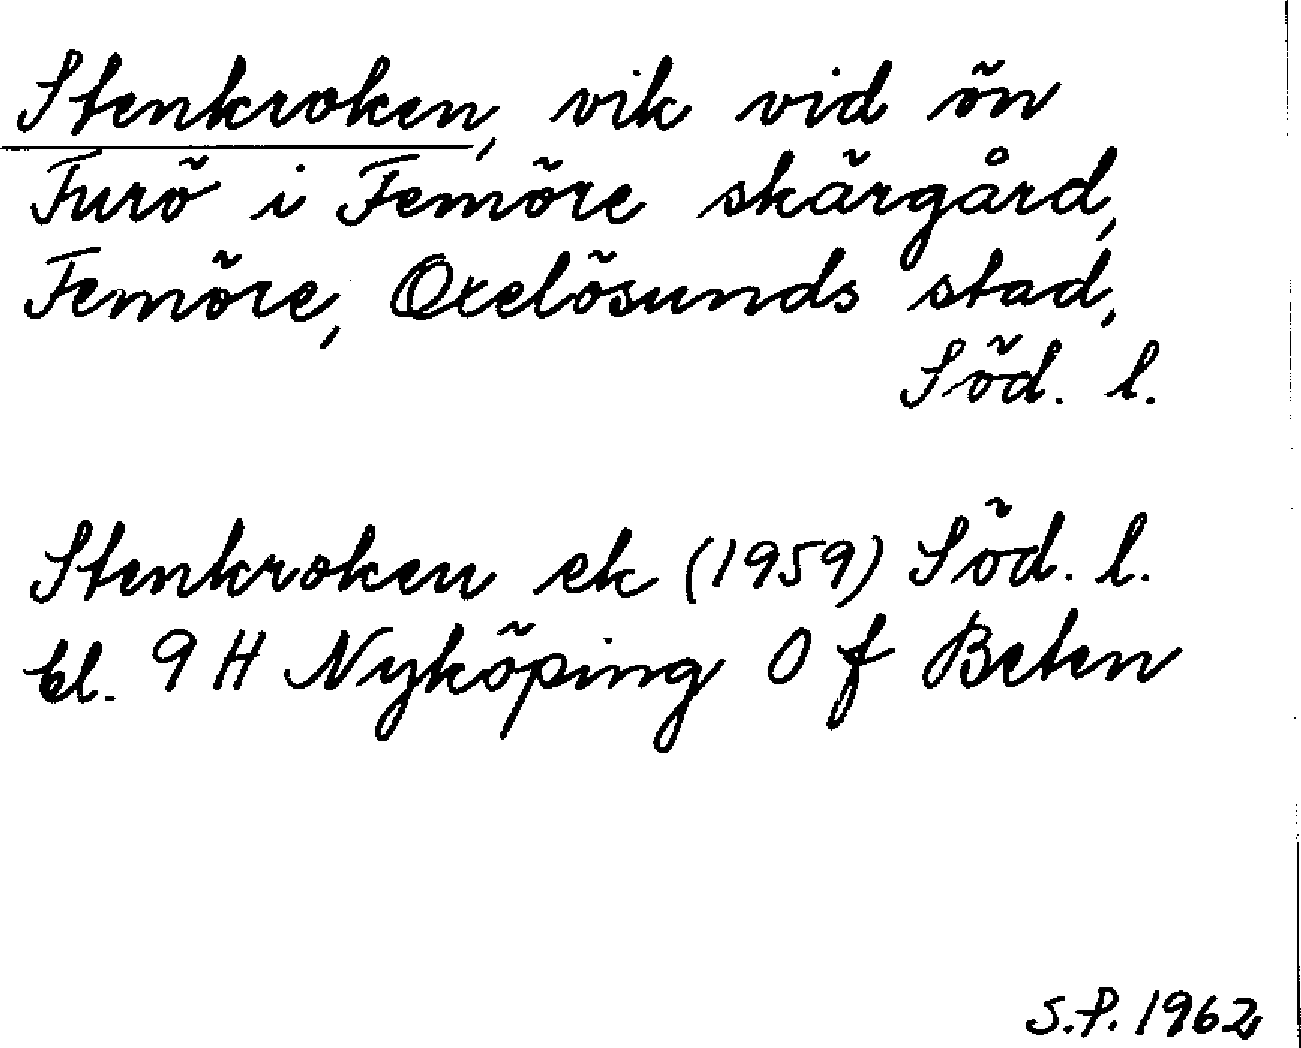 Stenkroken, vik vid ön
Furö i Femöre skärgård,
Femöre, Oxelösunds stad,
Söd. l.
Stenkroken ek (1959) Söd. l.
bl. 9 H Nyköping 0 f Beten
S.P. 1962